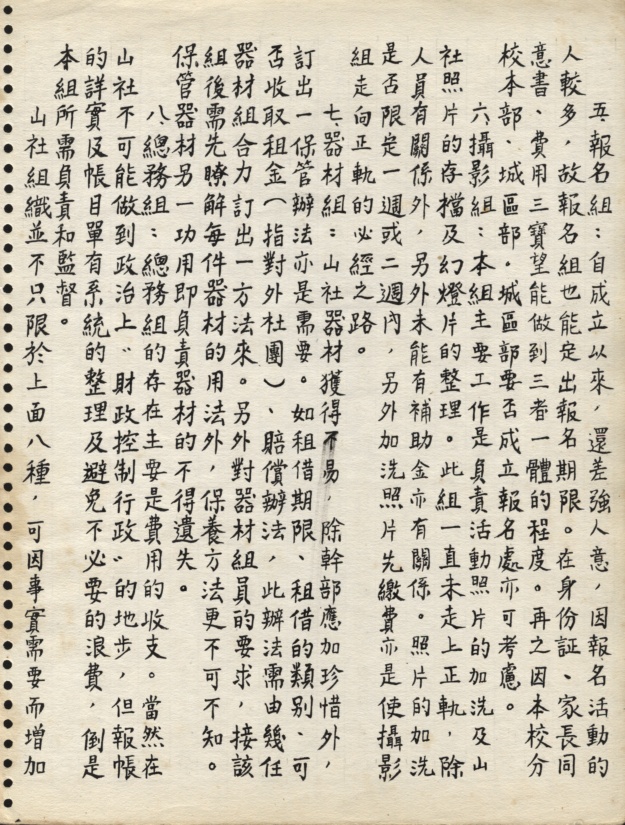 五、報名組：自成立以來，還差強人意，因報名活動的
人較多，故報名組也能定出報名期限。在身份証、家長同
意書、費用三寶望能做到三者一體的程度。再之因本校分
校本部、城區部，城區部要否成立報名處亦可考慮。
六、攝影組：本組主要工作是負責活動照片的加洗及山
社照片的存擋及幻燈片的整理。此組一直未走上正軌，除
人員有關係外，另外未能有補助金亦有關係。照片的加洗
是否限定一週或二週內，另外加洗照片先繳費亦是使攝影
組走向正軌的必經之路。
七、器材組：山社器材獲得不易，除幹部應加珍惜外，
訂出一保管辦法亦是需要。如租借期限、租借的類別、可
否收取租金（指對外社團）、賠償辦法，此辦法需由幾任
器材組合力訂出一方法來。另外對器材組員的要求，接該
組後需先瞭解每件器材的用法外，保養方法更不可不知。
保管器材另一功用即負責器材的不得遺失。
八、總務組：總務組的存在主要是費用的收支。當然在
山社不可能做到政治上〝財政控制行政〞的地步，但報帳
的詳實及帳目單有系統的整理及避免不必要的浪費，倒是
本組所需負責和監督。
山社組織並不只限於上面八種，可因事實需要而增加